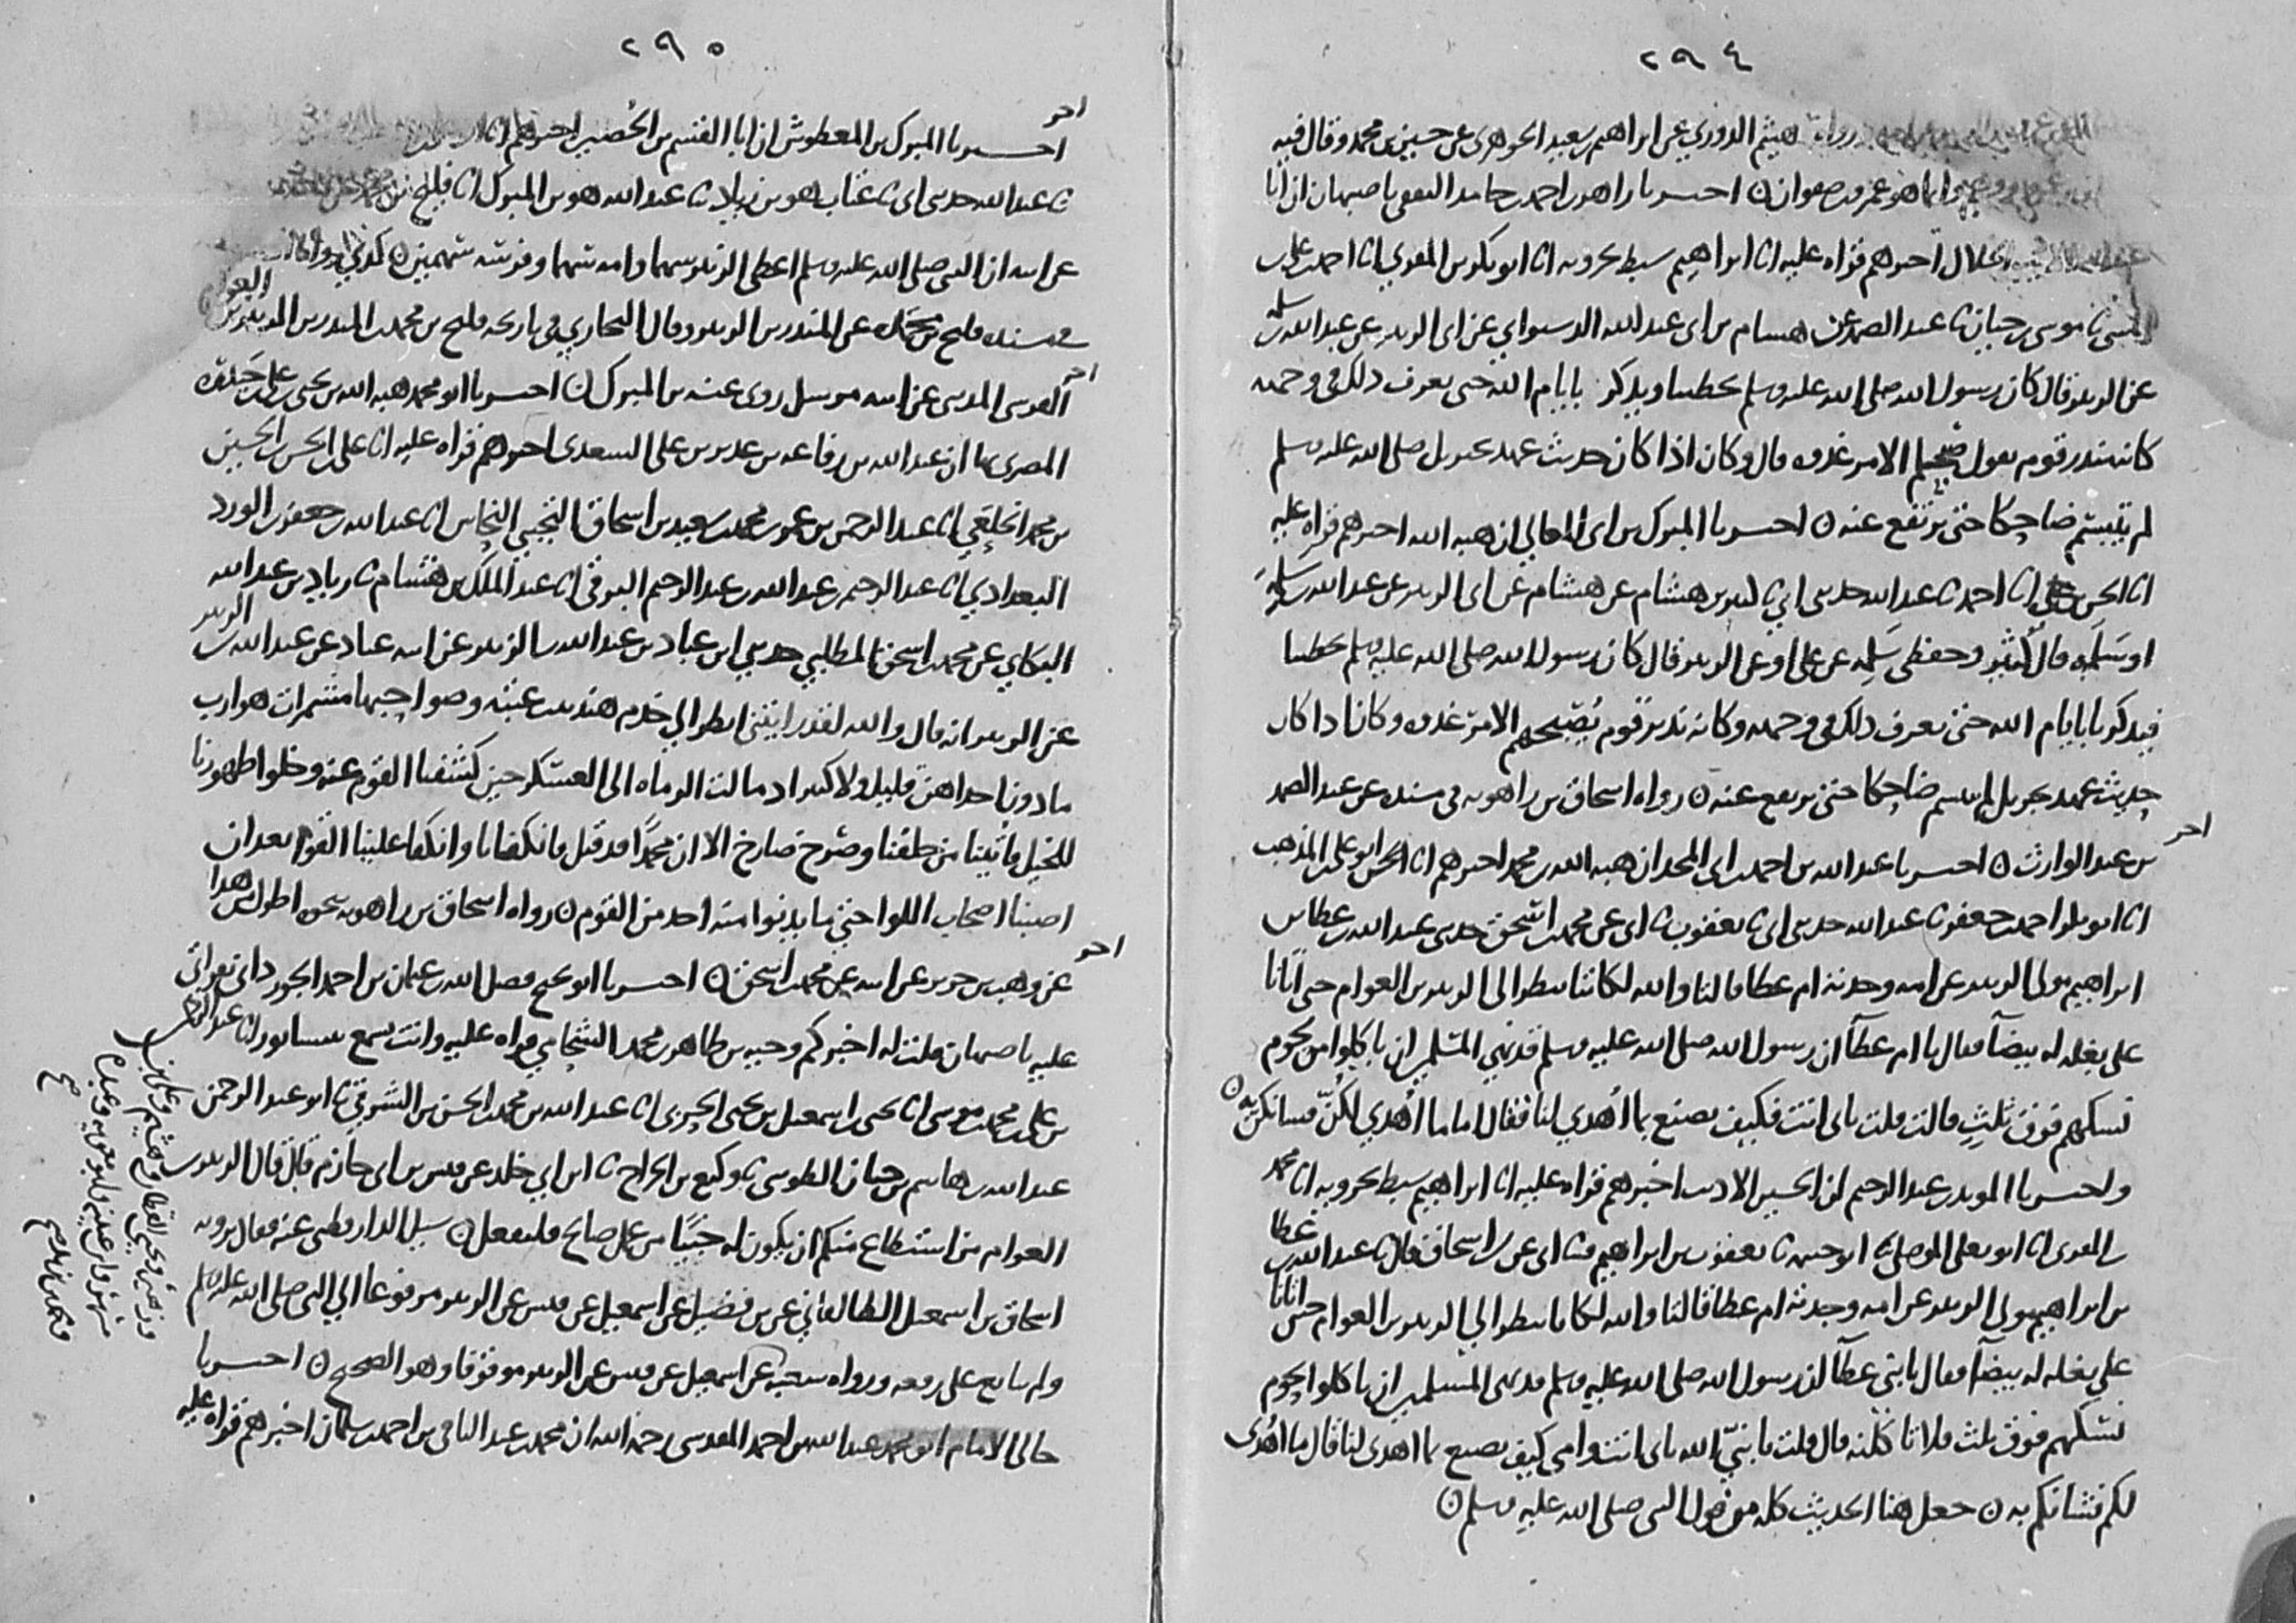 ٢٩٤
رواه هيثم الدوري عن ابراهيم بن سعيد الجوهري عن حسين بن محمد وقال فيه
وانما هو عمرو بن صفوان ن اخبرنا زاهر بن احمد بن حامد الثقفي باصبهان ان ابا
الخلال اخبرهم قراه عليه انا ابراهيم سبط بحرويه انا ابو بكر بن المقري انا احمد بن علي بن
المثنى نا موسى بن حيان نا عبد الصمد عن هشام بن ابي عبد الله الدستواي عن ابي الزبير عن عبد الله بن سلمه
عن الزبير قال كان رسول الله صلى الله عليه وسلم يخطبنا ويذكرنا بايام الله حتى يعرف ذلك في وجهه
كانه نذير قوم يقول صبحكم الامر غدوه قال وكان اذا كان حديث عهد بجبريل صلى الله عليه وسلم
لم يتبسم ضاحكا حتى يرتفع عنه ن اخبرنا المبرك بن ابي المعالي ان هبه الله اخبرهم قراه عليه
انا الحسن انا احمد نا عبد الله حدثني ابي نا كثير بن هشام عن هشام عن ابي الزبير عن عبد الله بن سلمه
او مسلمه قال كثير وحفظي سلمه عن علي او عن الزبير قال كان رسول الله صلى الله عليه وسلم يخطبنا
فيذكرنا بايام الله حتى نعرف ذلك في وجهه وكانه نذير قوم يصبحهم الامر غدوه وكان اذا كان
حديث عهد بجبريل لم يتبسم ضاحكا حتى يرتفع عنه ن رواه اسحاق بن راهويه في مسنده عن عبد الصمد
بن عبد الوارث ن اخبرنا عبد الله بن احمد بن ابي المجد ان هبه الله بن محمد اخبرهم انا الحسن ابو علي المذهب
انا ابو بكر احمد بن جعفر نا عبد الله حدثني ابي نا يعقوب نا ابي عن محمد بن اسحق حدثني عبد الله بن عطا بن
ابراهيم مولى الزبير عن امه وجدته ام عطا قالتا والله لكاننا ننظر الى الزبير بن العوام حين اتانا
على بغله له بيضا فقال يا ام عطا ان رسول الله صلى الله عليه وسلم قد نهى المسلمين ان ياكلوا من لحوم
نسكهم فوق ثلث قالت قلت بابي انت فكيف نصنع بما اُهدي لنا فقال اما ما اُهدي لكنّ فشانكن به ن
واخبرنا المويد بن عبد الرحيم ان الحسين الاديب اخبرهم قراه عليه انا ابراهيم سبط بحرويه انا محمد
بن المقري انا ابو يعلى الموصلي نا ابو خيثمه نا يعقوب بن ابراهيم نا ابي عن ابن اسحاق قال نا عبد الله بن عطا
بن ابراهيم مولى الزبير عن امه وجدته ام عطا قالتا والله لكاننا ننظر الى الزبير بن العوام حين اتانا
على بغله له بيضا فقال يابني عطا ان رسول الله صلى الله عليه وسلم قد نهى المسلمين ان ياكلوا لحوم
نسكهم فوق ثلث فلا تاكلنه قال قلت يا نبيّ الله بابي انت وامي كيف نصنع بما اهدي لنا قال ما اُهدي
لكم فشانكم به ن جعل هذا الحديث كله من قول النبي صلى الله عليه وسلم ن
٢٩٥
اخبرنا المبرك بن المعطوش ان ابا القسم بن الحصين اخبرهم انا
نا عبد الله حدثني ابي نا عتاب هو بن زياد نا عبد الله هو بن المبرك انا فليح بن محمد
عن ابيه ان النبي صلى الله عليه وسلم اعطى الزبير سهما وامه سهما وفرسه سهمين ن كذى رواه
في مسنده فليح بن محمد عن المنذر بن الزبير وقال البخاري في تاريخه فليح بن محمد بن المنذر بن الزبير بن العوام
القرشي المدني عن ابيه مرسل روى عنه بن المبرك ن اخبرنا ابو محمد هبه الله بن يحيى بن علي بن حيدره
المصري بها ان عبد الله بن رفاعه بن غدير بن علي السعدي اخبرهم قراه عليه انا علي بن الحسن بن الحسين
بن محمد الخلعي انا عبد الرحمن بن عمر بن محمد بن سعيد بن اسحاق التجيبي النحاس انا عبد الله بن جعفر بن الورد
البغدادي انا عبد الرحيم بن عبد الله بن عبد الرحيم البرقي انا عبد الملك بن هشام نا زياد بن عبد الله
البكاي عن محمد بن اسحق المطلبي حدثني ابن عباد بن عبد الله بن الزبير عن ابيه عباد عن عبد الله بن الزبير
عن الزبير انه قال والله لقد رايتني انظر الى خدم هند بنت عتبه وصواحبها مشمرات هوارب
ما دون احداهن قليل ولا كثير اذ مالت الرماه الى العسكر حين كشفنا القوم عنه وخلوا ظهورنا
للخيل فاُتينا من خلفنا وصرخ صارخ الا ان محمدًا قد قتل فانكفانا وانكفا علينا القوم بعد ان
اصبنا اصحاب اللوا حتى ما يدنوا منه احد من القوم ن رواه اسحاق بن راهويه بنحوه اطول من هذا
عن وهب بن جرير عن ابيه عن محمد بن اسحق ن اخبرنا ابو نجيح فضل الله بن عثمان بن احمد الجوزداني بقراتي
عليه باصبهان قلت له اخبركم وجيه بن طاهر بن محمد الشحامي قراه عليه وانت تسمع بنيسابور انا
بن علي بن محمد بن موسى انا يحيى بن اسمعيل بن يحيى الحربي انا عبد الله بن محمد بن الحسن بن الشرقي نا ابو عبد الرحمن
عبد الله بن هاشم بن حيان الطوسي نا وكيع بن الجراح نا ابن ابي خلد عن قيس بن ابي حازم قال قال الزبير بن
العوام من استطاع منكم ان يكون له خبيًا من عمل صالح فليفعل ن سيل الدارقطني عنه فقال يرويه
اسحاق بن اسمعيل الطالقاني عن بن فضيل عن اسمعيل عن قيس عن الزبير مرفوعا الى النبي صلى الله عليه وسلم
ولم يتابع على رفعه ورواه شعبه عن اسمعيل عن قيس عن الزبير موقوفا وهو الصحيح ن اخبرنا
خالي الامام ابو محمد عبد الله بن احمد المقدسي رحمه الله ان محمد بن عبد الباقي بن احمد بن سلمان اخبرهم قراه عليه
وزهير ويحيى القطان وهشيم